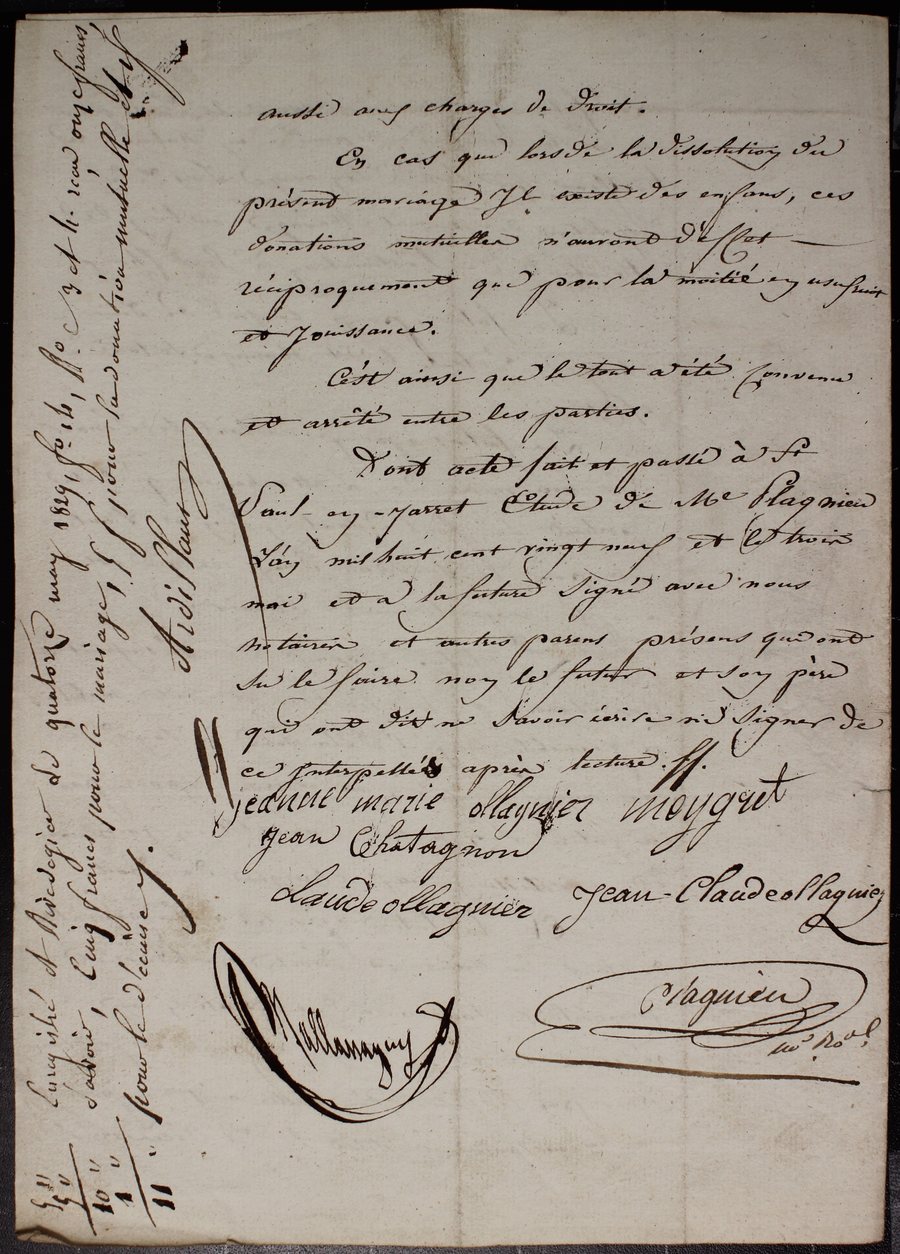 aussi aux charges de droit.
En cas que lors de la dissolution du
présent mariage Il existe des enfans, ces
donations mutuelles n'auront d'effet
réciproquement que pour la moitié en usufruit
et Jouissance.
C'est ainsi que le tout a été convenu
et arrêté entre les parties.
Dont acte fait et passé à St
Paul-en-Jarret Etude de Me Plagnieu
L'an mil huit cent vingt neuf et le trois
mai et a la future signé avec nous
notaires et autres parens présens qui ont
su le faire non le futur et son père
qui ont dit ne savoir écrire ni signer de
ce Interpellés après lecture. ff.
jeanne marie ollagnier meygret
jean Chatagnon
Claude ollagnier Jean-Claude ollagnier
Plagnieu
no. Roal.
Enregistré à Rivedegier le quatorze may 1829, fo. 14, Ro. C 3 et 4. reçu onze francs,
Savoir, Cinq francs pour le mariage, 5 f pour la donation mutuelle et 1 f
pour le décime.
5 "
5 "
10 "
1 "
11 "